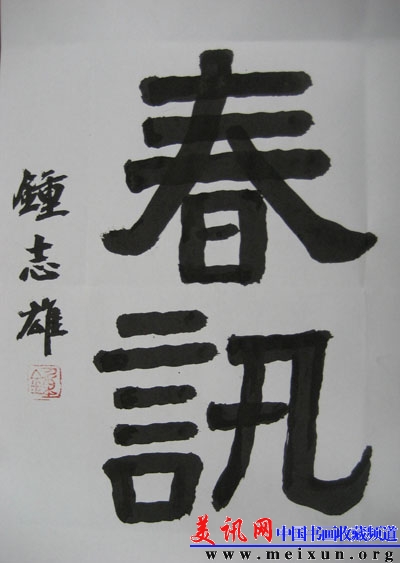 春訊
鍾志雄
美讯网中国书画收藏频道
www.meixun.org